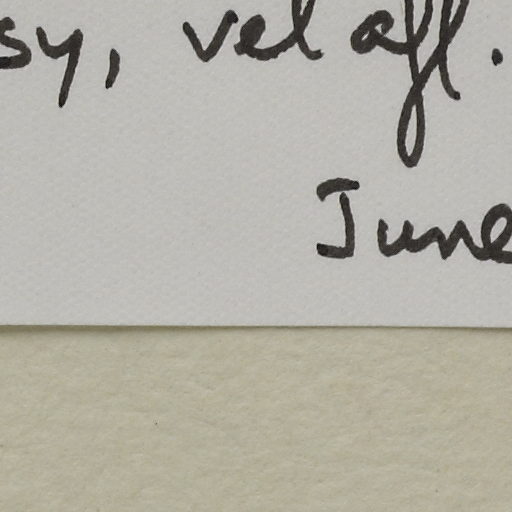 sy, vel aff.
June